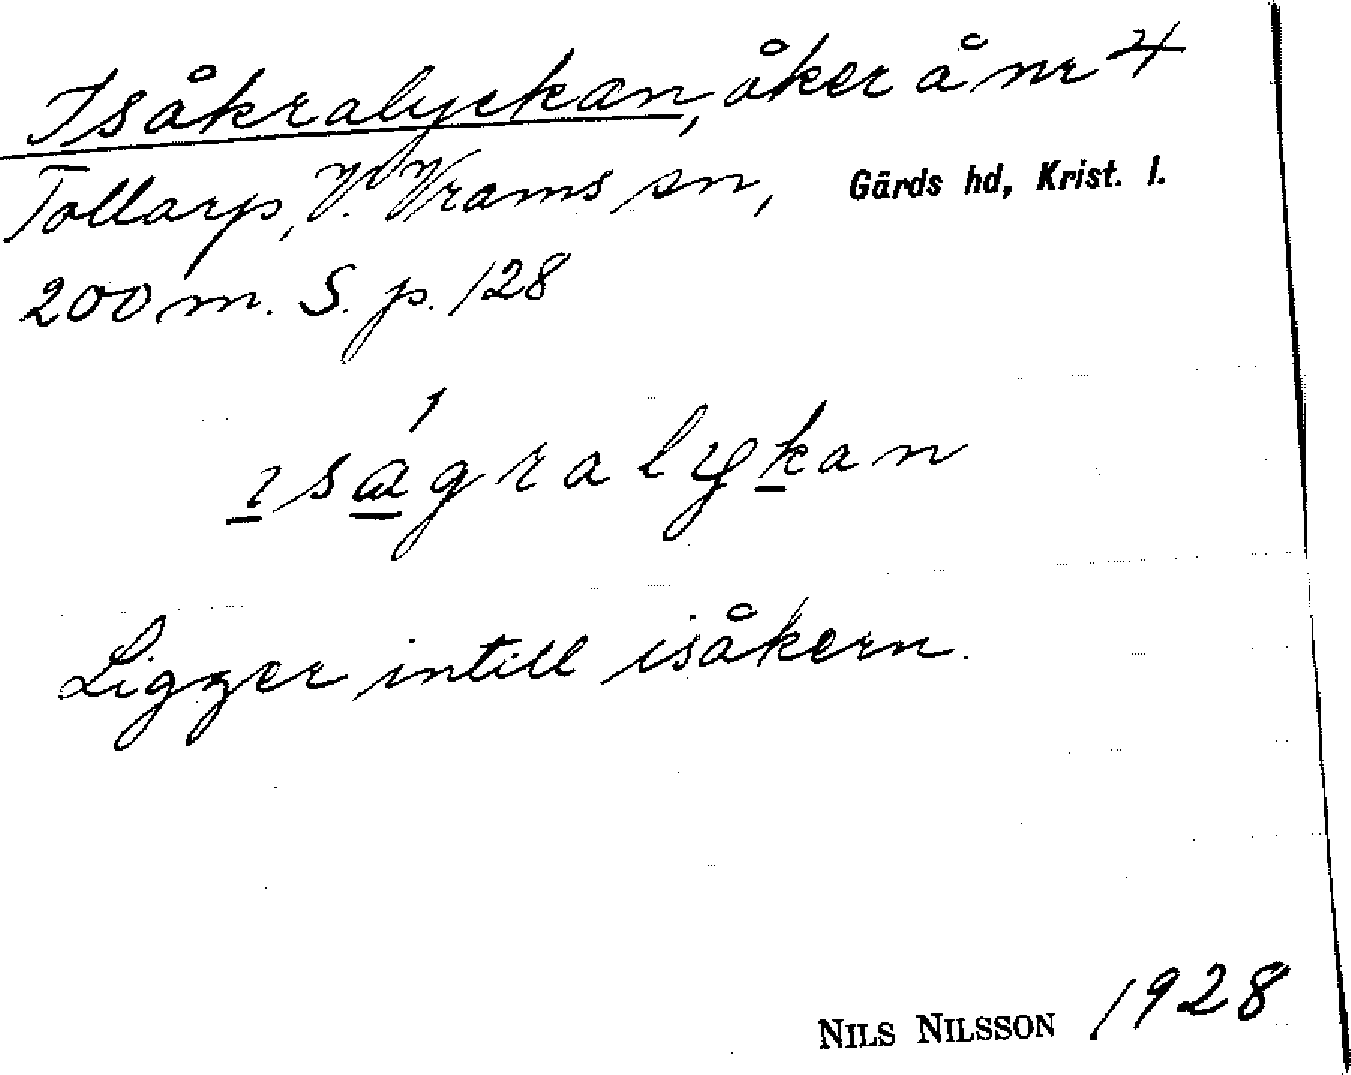 Isåkralyckan, åker å nr 4
Tollarp, V. Vrams sn, Gärds hd, Krist. l.
200 m. S. p. 128
Ligger intill isåkern.
NILS NILSSON 1928